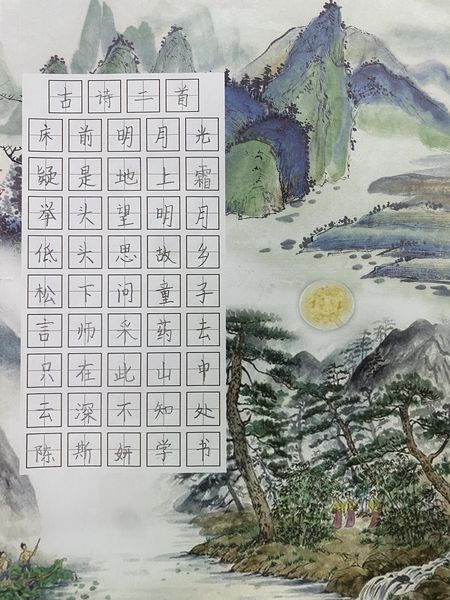 古诗二首
床前明月光
疑是地上霜
举头望明月
低头思故乡
松下问童子
言师采药去
只在此山中
去深不知处
陈斯妍学书